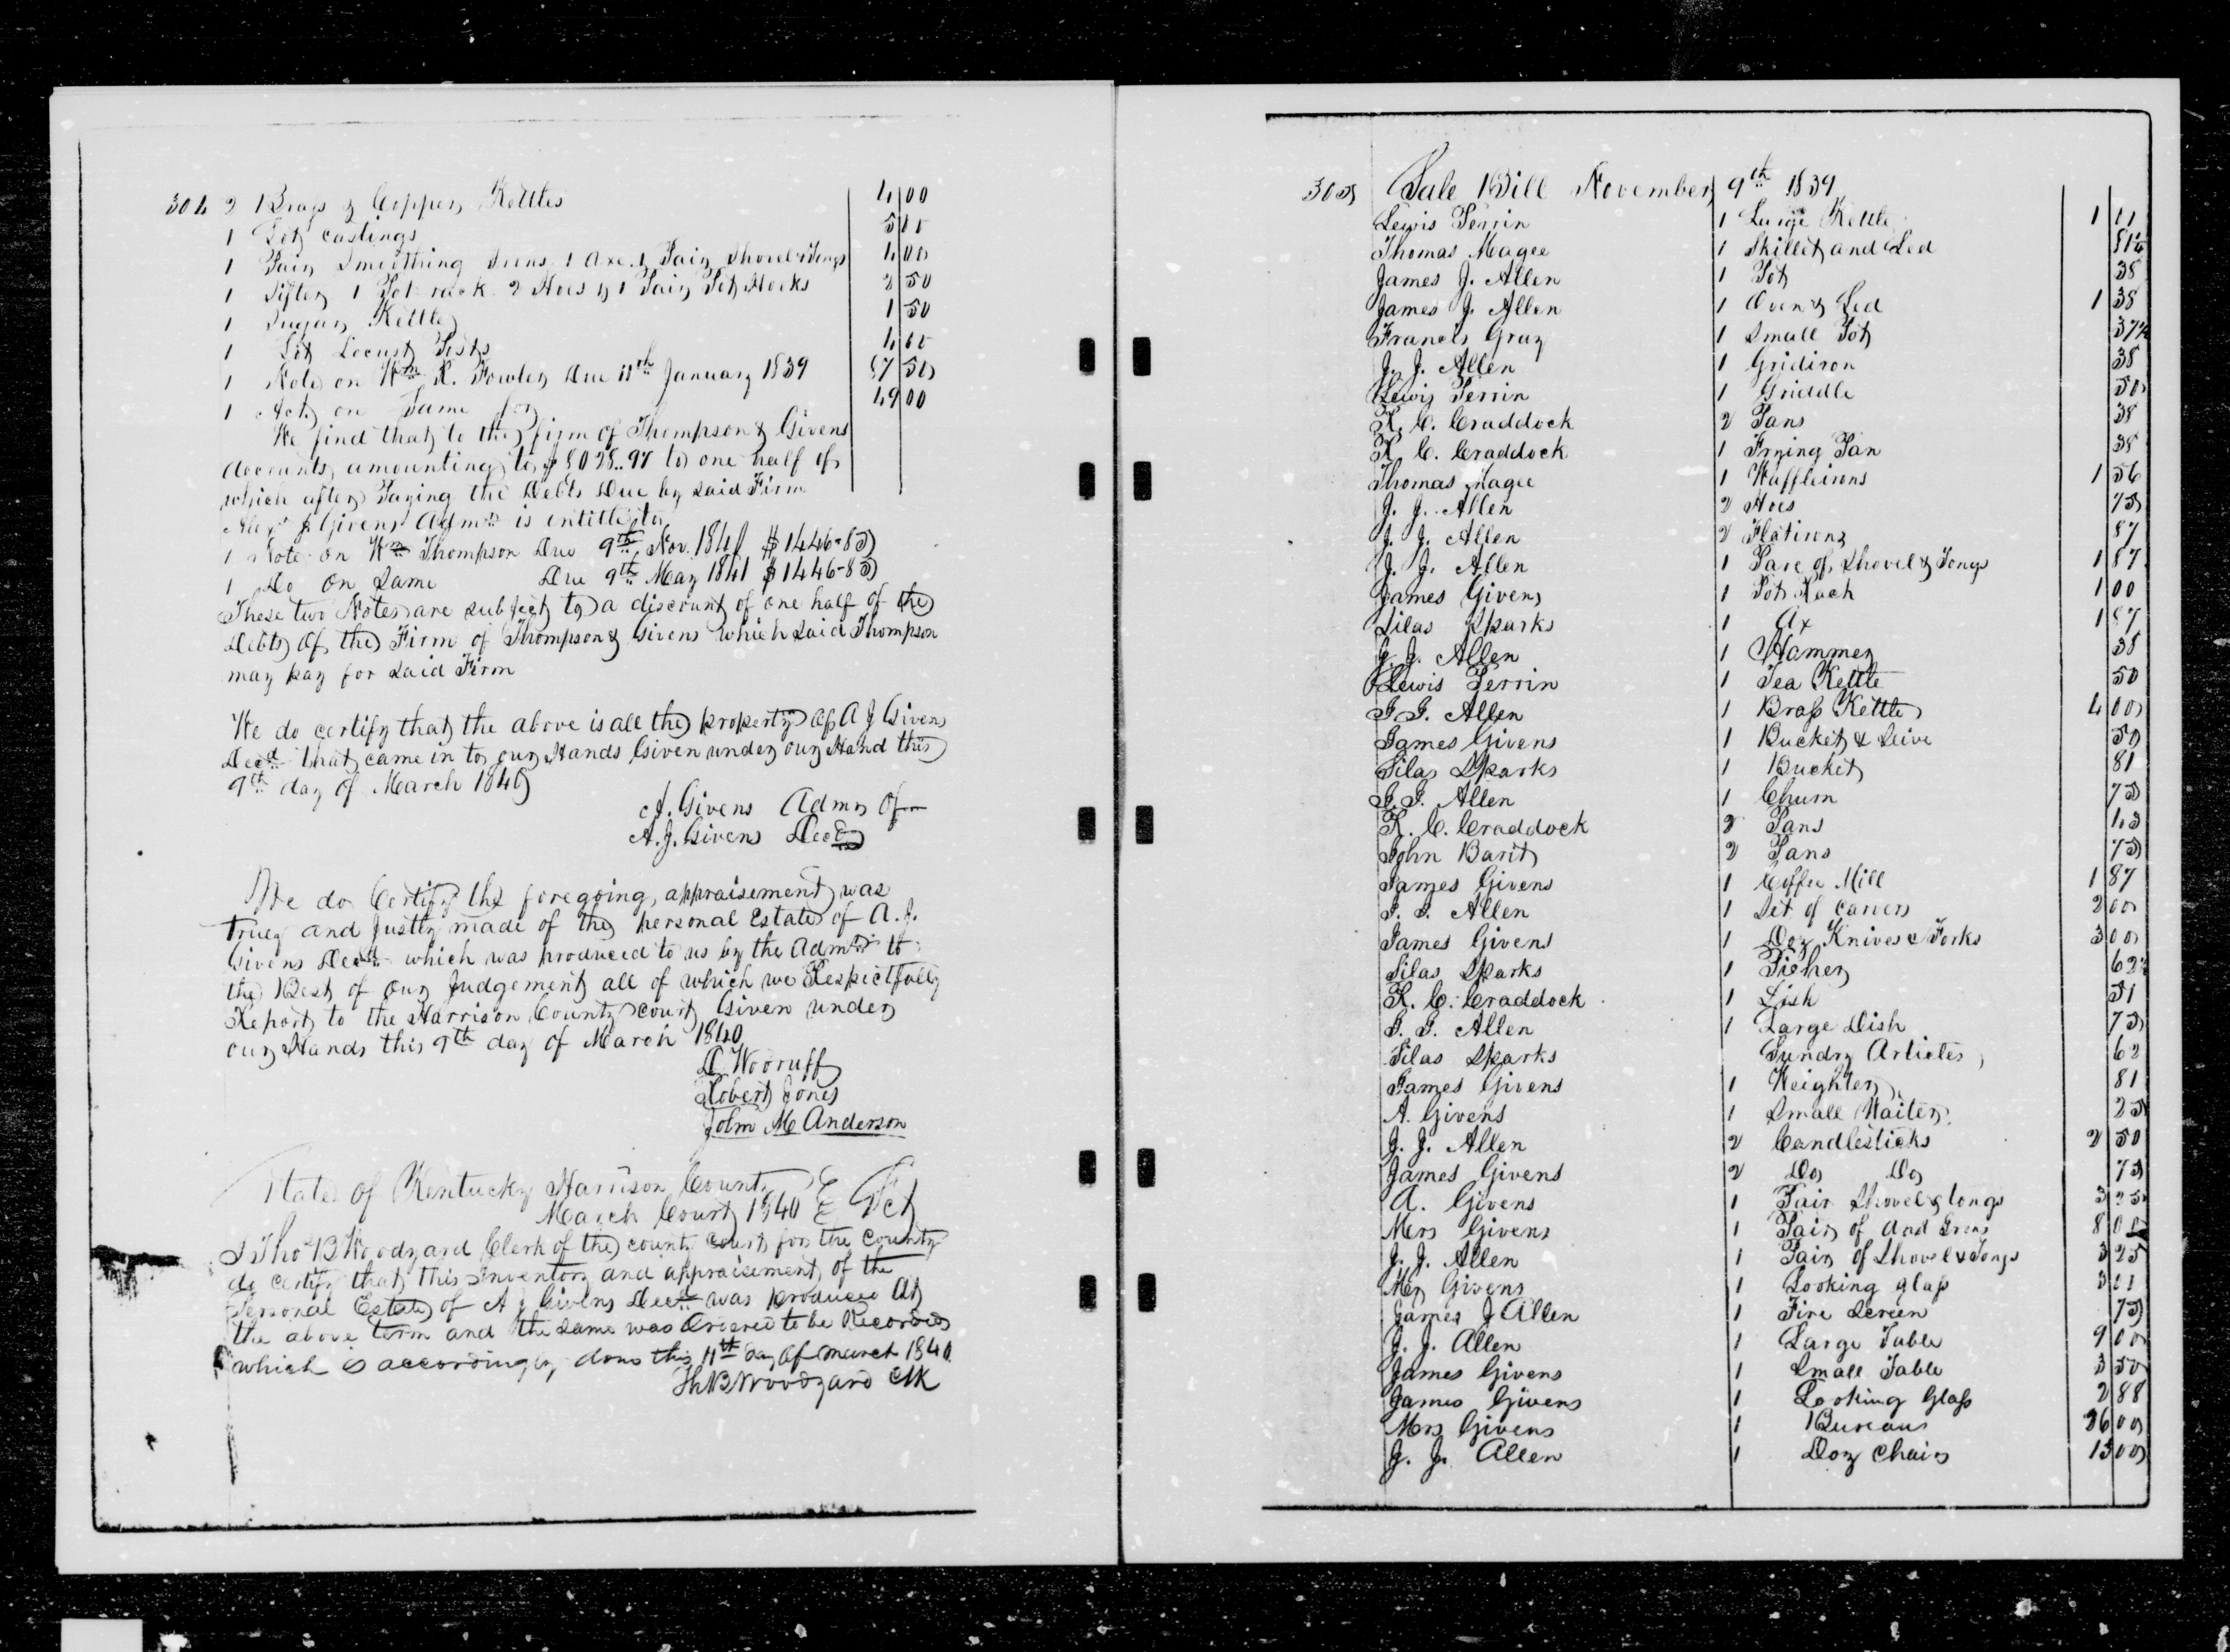 304 2 Brass & Copper Kettles 4 00
1 Lot castings 5 00
1 Pair Smoothing Irons 1 Axe & Pair Shovel & Tongs 4 00
1 Sifter 1 Pot rack 2 Hoes & 1 Pair Pot Hooks 2 50
1 Sugar Kettle 1 50
1 Lot Locust Posts 4 00
1 Note on Wm R. Fowler Due 11th January 1839 50
1 Act on Same for 49 00
We find that to the firm of Thompson & Givens
accounts amounting to $8028..97 to one half of
which after Paying the Debts Due by said Firm
Alexr J Givens Admr is entitle to
1 Note on Wm Thompson Due 9th Nov. 1840 $1446-85
1 Do on Same Due 9th May 1841 $1446-85
These two Notes are subject to a discount of one half of the
Debts of the Firm of Thompson & Givens which said Thompson
may pay for said Firm
We do certify that the above is all the property of A J Givens
Decd that came in to our Hands Given under our Hand this
9th day of March 1840
J. Givens Admr of
A. J. Givens Decd
We do Certify the foregoing appraisement was
truey and Justly made of the personal Estate of A. J.
Givens Decd which was produced to us by the Admr to
the Best of our Judgement all of which we Respectfully
Report to the Harrison County court Given under
our Hands this 9th day of March 1840
D Wooruff
Robert Jones
John M Anderson
State of Kentucky Harrison County
March Court 1840 } Sct
I Thos B Woodyard Clerk of the county court for the county
do certify that this Inventory and appraisement of the
Personal Estate of A J Givens Decd was produced At
the above term and the same was Ordered to be Recorded
which is accordingly done this 11th day of March 1840.
Th. B Woodyard Clk
305 Sale Bill November 9th 1839
Lewis Perrin 1 Large Kettle 1
Thomas Magee 1 Skillet and Led
James J. Allen 1 Pot 38
James J. Allen 1 Oven & Led 1 38
Francis Gray 1 Small Pot 37½
J. J. Allen 1 Gridiron 38
Lewis Perrin 1 Griddle 50
R. C. Craddock 2 Pans 38
R. C. Craddock 1 Frying Pan 38
Thomas Magee 1 Waffleirons 1 56
J. J. Allen 2 Hoes 75
J. J. Allen 2 Flatirons 87
J. J. Allen 1 Pare of Shovel & Tongs 1 87
James Givens 1 Pot Rack 1 00
Silas Sparks 1 Ax 1 87
J. J. Allen 1 Hammer 38
Lewis Perrin 1 Tea Kettle 50
J. J. Allen 1 Brass Kettle 4 00
James Givens 1 Bucket & Seive 50
Silas Sparks 1 Bucket 81
J. J. Allen 1 Churn 75
R. C. Craddock 2 Pans
John Barit 2 Pans 75
James Givens 1 Coffee Mill 1 87
J. J. Allen 1 Set of Carvers 2 00
James Givens 1 Doz Knives & Forks 3 00
Silas Sparks 1 Picher 62½
R. C. Craddock 1 Dish
J. J. Allen 1 Large Dish 75
Silas Sparks Sundry Articles 62
James Givens 1 Weighter 81
A. Givens 1 Small Waiter 25
J. J. Allen 2 Candlesticks 2 50
James Givens 2 Do Do 75
A. Givens 1 Pair Shovel & tongs 3 25
Mrs Givens 1 Pair of And Irons 8 00
J. J. Allen 1 Pair of Shovel & Tongs 3 25
Mrs Givens 1 Looking glass
James J Allen 1 Fire Screen 75
J. J. Allen 1 Large Table 9 00
James Givens 1 Small Table 3 50
James Givens 1 Looking Glass 2 88
Mrs Givens 1 Bureau 00
J. J. Allen 1 Doz Chairs 13 00